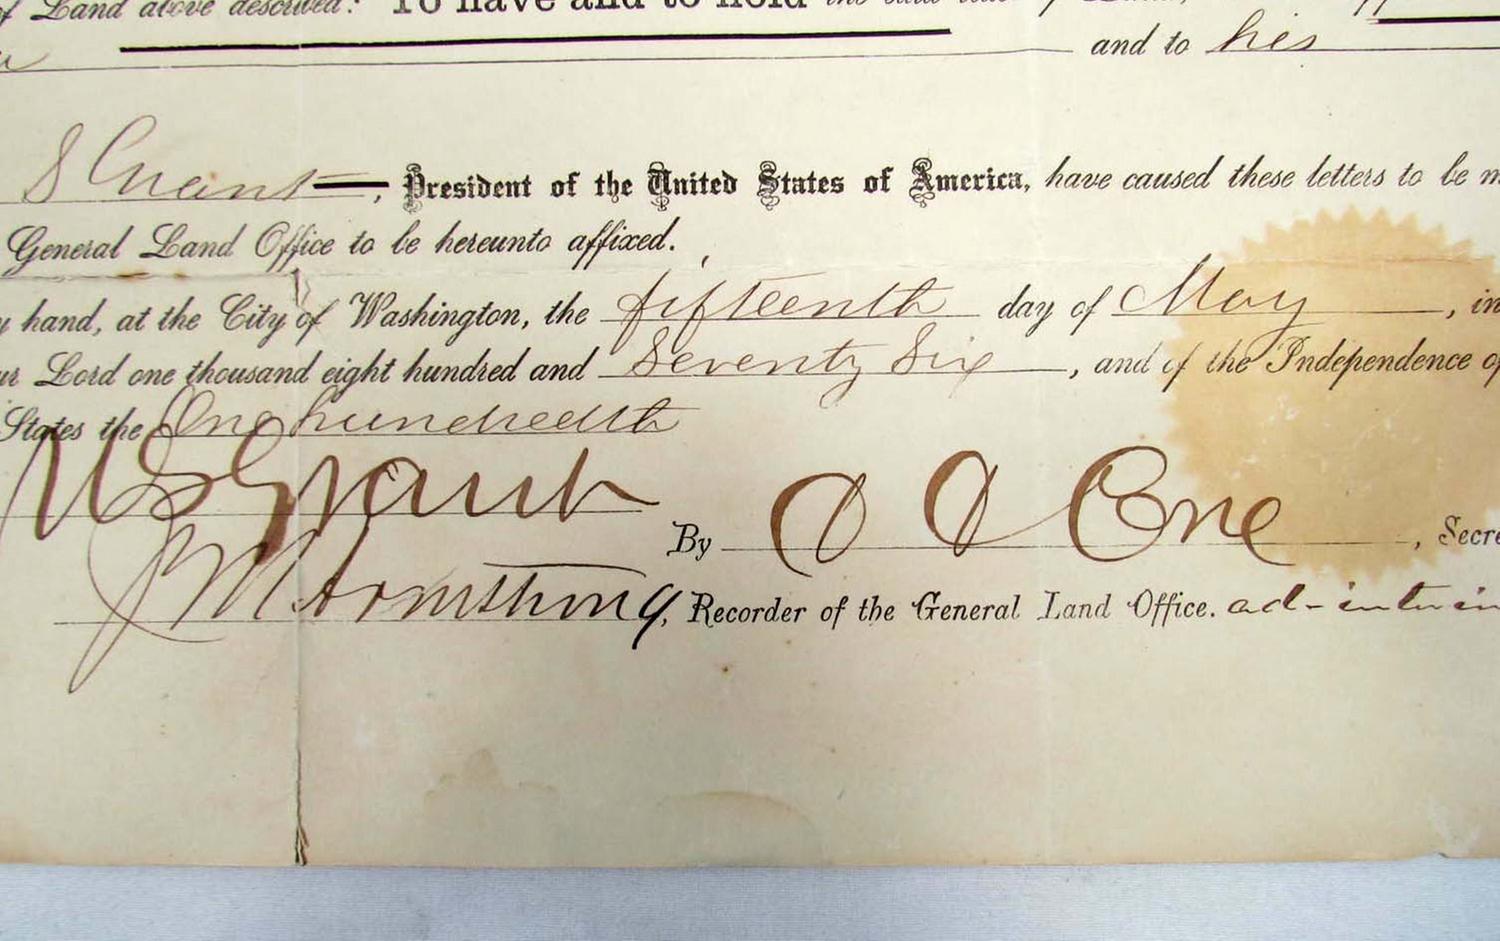 of Land above described: To have and to hold the said
and to his
S Grant, President of the United States of America, have caused these letters to be m
General Land Office to be hereunto affixed.
y hand, at the City of Washington, the fifteenth day of May, in
ur Lord one thousand eight hundred and Seventy Six, and of the Independence of
States the One hundredth
U S Grant
By D D Cone, Secre
J M Armstrong, Recorder of the General Land Office. ad-interim